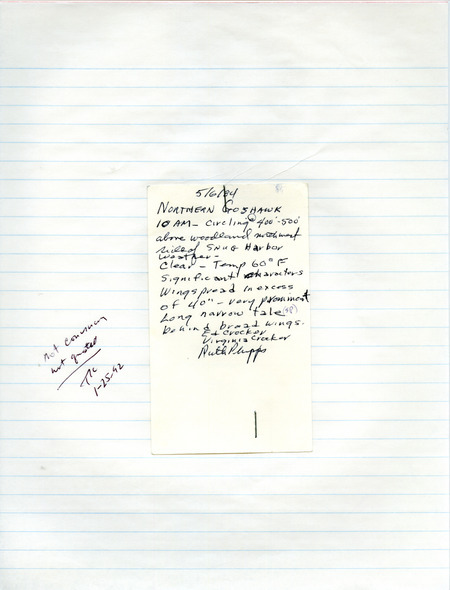 5/6/84
NORTHERN GOSHAWK
10 AM - Circling @ 400'-500'
above woodland northwest
side of SNUG HARBOR
Weather -
Clear - Temp 60° F
Significant characters
Wingspread in excess
of 40" - very prominent
Long narrow tale (sp)
behind broad wings.
Ed Crocker
Virginia Crocker
Ruth Phipps
not convincing
not quoted
1-25-92